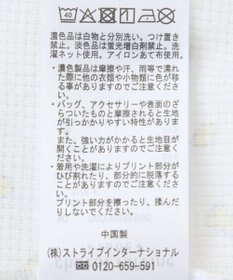 40
濃色品は白物と分別洗い。つけ置き
禁止。淡色品は蛍光増白剤禁止。洗
濯ネット使用。アイロンあて布使用。
・濃色製品は摩擦や汗、雨等で濡れ
た際に他の衣類や小物類に色が移
る事がありますのでご注意くださ
い。
・バッグ、アクセサリーや表面のざ
らついたものと摩擦されると生地
が引っかかりやすい特性がありま
す。
また、強い力がかかると生地目が
開くことがありますのでご注意く
ださい。
・着用や洗濯によりプリント部分が
ひび割れたり、部分的に脱落する
ことがありますのでご注意くださ
い。
プリント部分を擦ったり、揉んだ
りしないでください。
中国製
(株)ストライプインターナショナル
☎ 0120-659-591